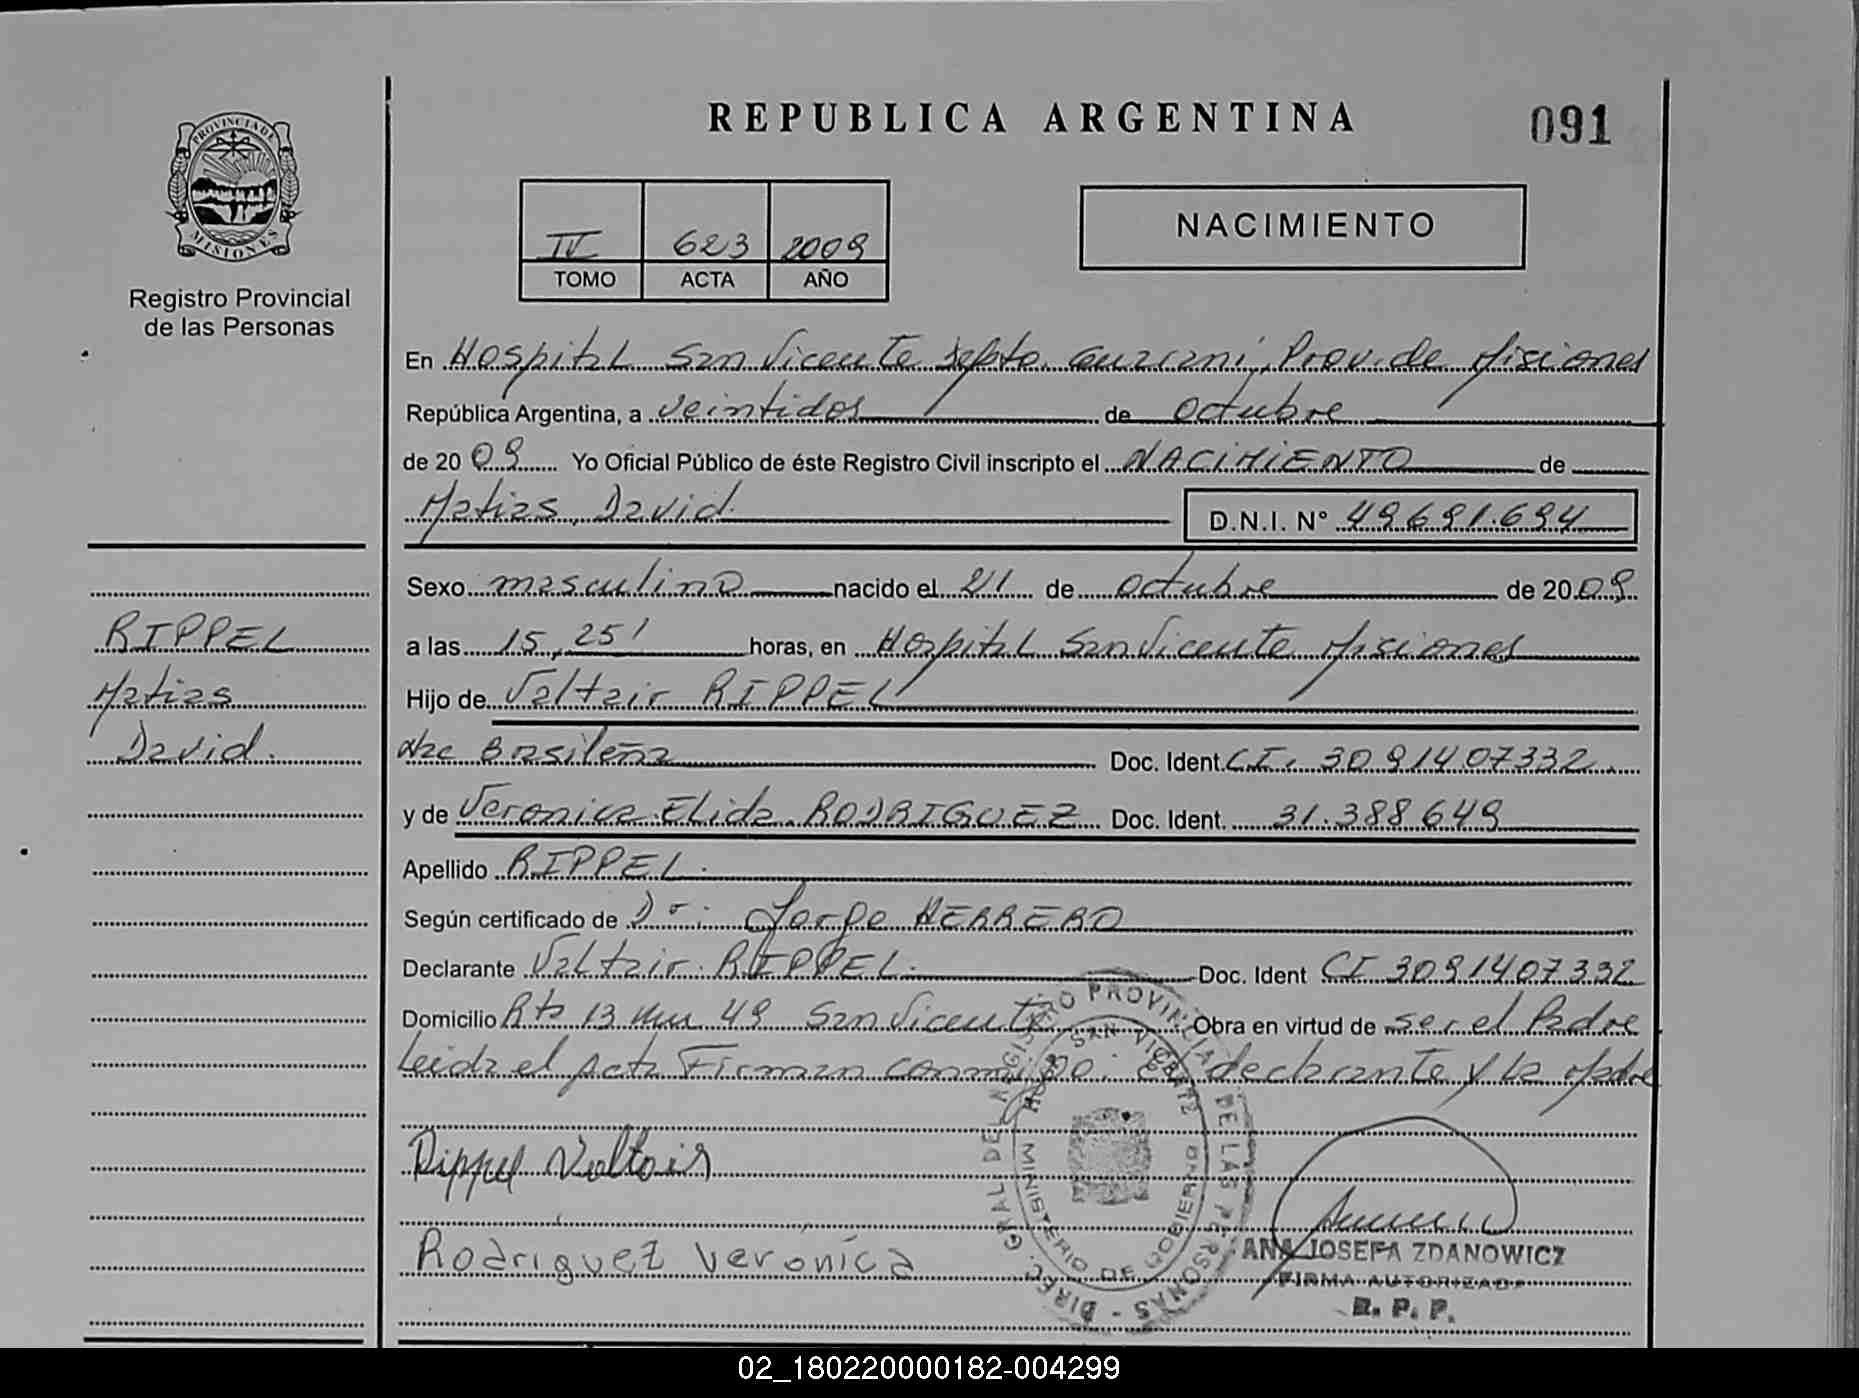 PROVINCIA DE
MISIONES
Registro Provincial
de las Personas
RIPPEL
Matias
David.
REPUBLICA ARGENTINA
091
IV 623 2009
TOMO ACTA AÑO
NACIMIENTO
En Hospital San Vicente Depto. Guarani, Prov. de Misiones
República Argentina, a veintidos de octubre
de 20 09 Yo Oficial Público de éste Registro Civil inscripto el NACIMIENTO de
Matias, David.
D.N.I. N° 49691.694
Sexo masculino nacido el 21 de octubre de 20 09
a las 15,25' horas, en Hospital San Vicente Misiones
Hijo de Valtair RIPPEL
Nac Brasileña Doc. Ident. CI. 3091407332
y de Veronica Elida RODRIGUEZ Doc. Ident. 31.388649
Apellido RIPPEL.
Según certificado de Dr: Jorge HERRERO
Declarante Valtair RIPPEL. Doc. Ident CI 3091407332
Domicilio Rta 13 km 49 San Vicente Obra en virtud de ser el Padre
Leida el acta Firman conmigo: el declarante y la Madre
Rippel Valtair
Rodriguez Verónica
DIREC. GRAL DEL REGISTRO PROVINCIAL DE LAS PERSONAS -
SAN VICENTE
MINISTERIO DE GOBIERNO
ANA JOSEFA ZDANOWICZ
FIRMA AUTORIZADA
R. P. P.
02_180220000182-004299